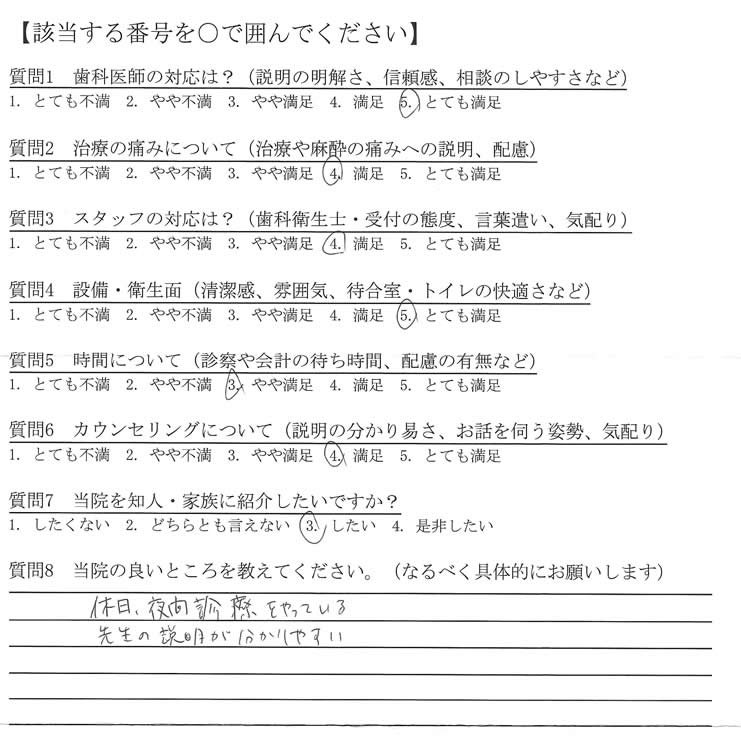 【該当する番号を〇で囲んでください】
質問1 歯科医師の対応は？（説明の明解さ、信頼感、相談のしやすさなど）
1. とても不満 2. やや不満 3. やや満足 4. 満足 5. とても満足
質問2 治療の痛みについて（治療や麻酔の痛みへの説明、配慮）
1. とても不満 2. やや不満 3. やや満足 4. 満足 5. とても満足
質問3 スタッフの対応は？（歯科衛生士・受付の態度、言葉遣い、気配り）
1. とても不満 2. やや不満 3. やや満足 4. 満足 5. とても満足
質問4 設備・衛生面（清潔感、雰囲気、待合室・トイレの快適さなど）
1. とても不満 2. やや不満 3. やや満足 4. 満足 5. とても満足
質問5 時間について（診察や会計の待ち時間、配慮の有無など）
1. とても不満 2. やや不満 3. やや満足 4. 満足 5. とても満足
質問6 カウンセリングについて（説明の分かり易さ、お話を伺う姿勢、気配り）
1. とても不満 2. やや不満 3. やや満足 4. 満足 5. とても満足
質問7 当院を知人・家族に紹介したいですか？
1. したくない 2. どちらとも言えない 3. したい 4. 是非したい
質問8 当院の良いところを教えてください。（なるべく具体的にお願いします）
休日、夜間診療をやっている
先生の説明が分かりやすい